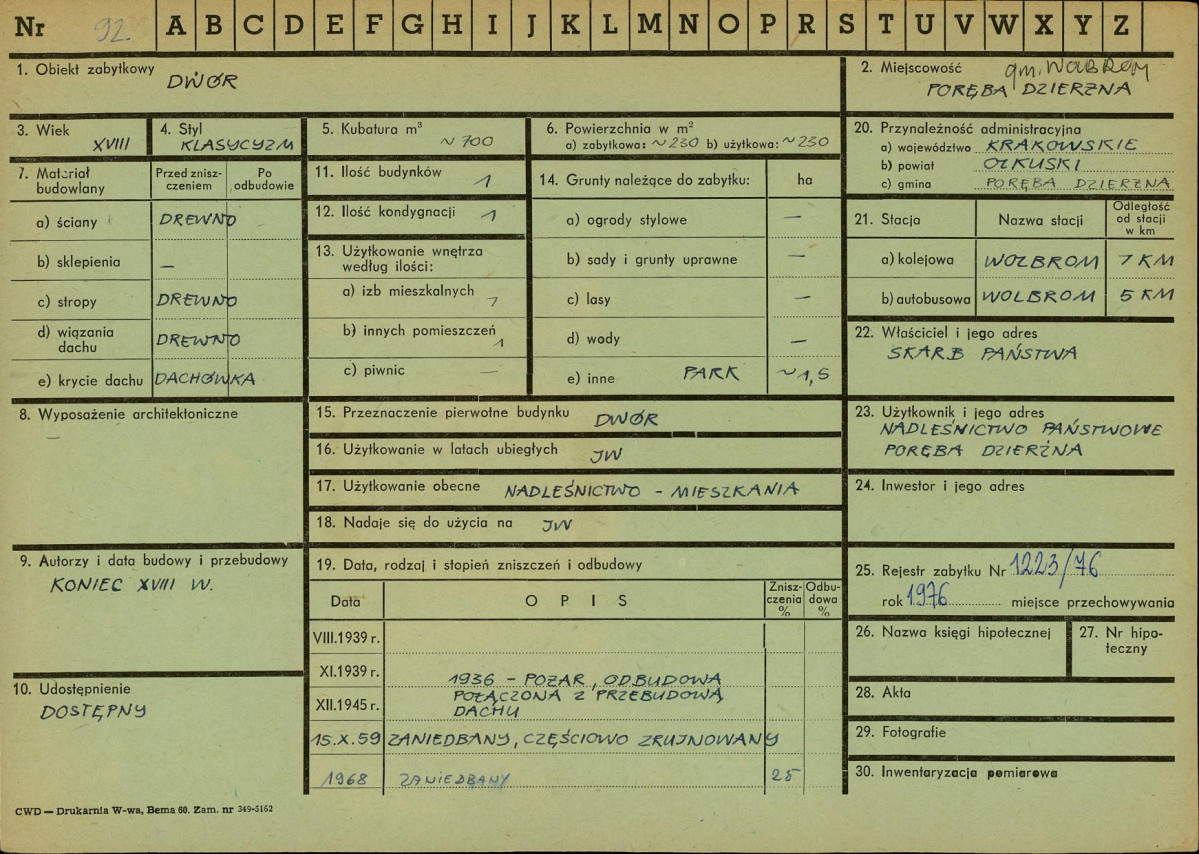 Nr 92. A B C D E F G H I J K L M N O P R S T U V W X Y Z
1. Obiekt zabytkowy DWÓR
2. Miejscowość gm. WOLBROM
PORĘBA DZIERŻNA
3. Wiek XVIII
4. Styl KLASYCYZM
5. Kubatura m³ ~700
6. Powierzchnia w m²
a) zabytkowa: ~230 b) użytkowa: ~230
20. Przynależność administracyjna
a) województwo KRAKOWSKIE
b) powiat OLKUSKI
c) gmina PORĘBA DZIERŻNA
7. Materiał budowlany
Przed zniszczeniem
Po odbudowie
a) ściany DREWNO
b) sklepienia —
c) stropy DREWNO
d) wiązania dachu DREWNO
e) krycie dachu DACHÓWKA
11. Ilość budynków 1
12. Ilość kondygnacji 1
13. Użytkowanie wnętrza
według ilości:
a) izb mieszkalnych 7
b) innych pomieszczeń 1
c) piwnic —
14. Grunty należące do zabytku: ha
a) ogrody stylowe —
b) sady i grunty uprawne —
c) lasy —
d) wody —
e) inne PARK ~1,5
21. Stacja
Nazwa stacji
Odległość od stacji w km
a) kolejowa WOLBROM 7 KM
b) autobusowa WOLBROM 5 KM
22. Właściciel i jego adres
SKARB PAŃSTWA
8. Wyposażenie architektoniczne
—
15. Przeznaczenie pierwotne budynku DWÓR
16. Użytkowanie w latach ubiegłych JW
17. Użytkowanie obecne NADLEŚNICTWO - MIESZKANIA
18. Nadaje się do użycia na JW
23. Użytkownik i jego adres
NADLEŚNICTWO PAŃSTWOWE
PORĘBA DZIERŻNA
24. Inwestor i jego adres
9. Autorzy i data budowy i przebudowy
KONIEC XVIII W.
10. Udostępnienie
DOSTĘPNY
19. Data, rodzaj i stopień zniszczeń i odbudowy
Data
OPIS
Zniszczenia %
Odbudowa %
VIII.1939 r.
XI.1939 r.
XII.1945 r.
1936 - POŻAR, ODBUDOWA
POŁĄCZONA Z PRZEBUDOWĄ
DACHU
15.X.59 ZANIEDBANY, CZĘŚCIOWO ZRUJNOWANY
1968 ZANIEDBANY 25
25. Rejestr zabytku Nr 1223/76
rok 1976 miejsce przechowywania
26. Nazwa księgi hipotecznej
27. Nr hipoteczny
28. Akta
29. Fotografie
30. Inwentaryzacja pomiarowa
CWD — Drukarnia W-wa, Bema 60. Zam. nr 349-5162